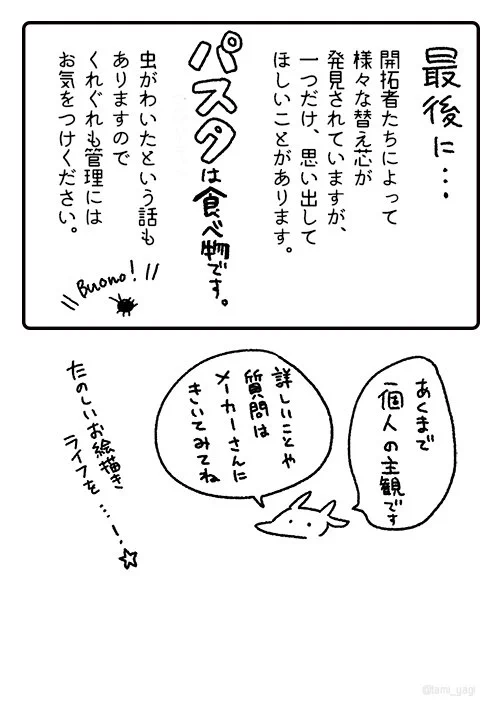 最後に…
開拓者たちによって
様々な替え芯が
発見されていますが、
一つだけ、思い出して
ほしいことがあります。
パスタは食べ物です。
虫がわいたという話も
ありますので
くれぐれも管理には
お気をつけください。
Buono!
あくまで
個人の主観です
詳しいことや
質問は
メーカーさんに
きいてみてね
たのしいお絵描き
ライフを…!☆
@tomi_yagi